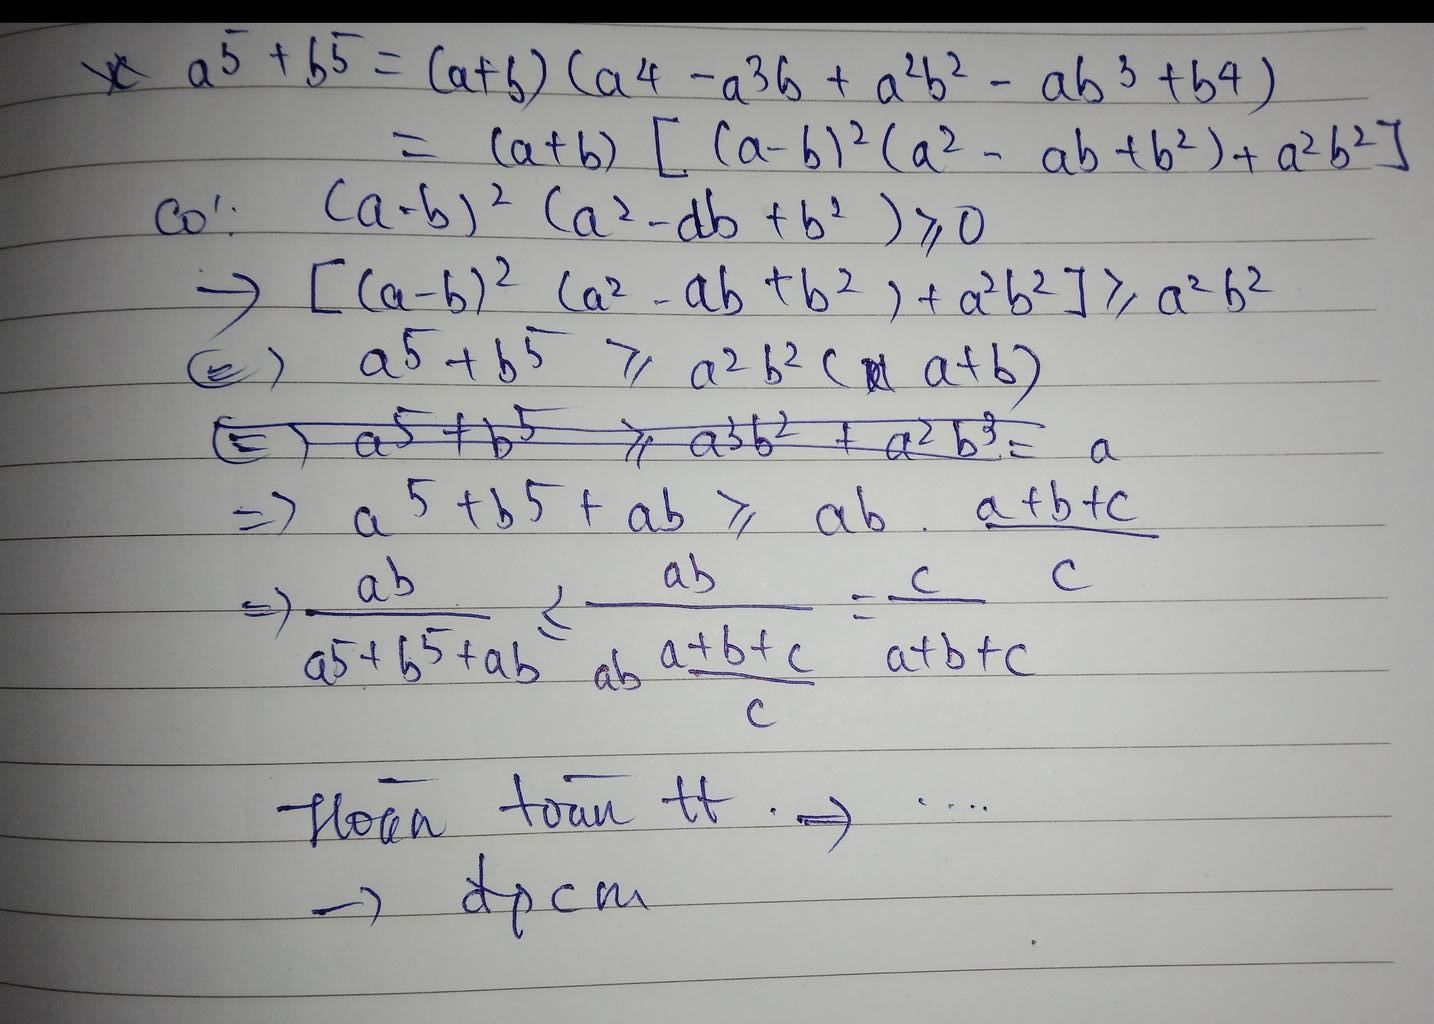 * a⁵ + b⁵ = (a+b) (a⁴ - a³b + a²b² - ab³ + b⁴)
= (a+b) [ (a-b)² (a² - ab + b²) + a²b² ]
Có: (a-b)² (a² - ab + b²) ⩾ 0
→ [(a-b)² (a² - ab + b²) + a²b²] ⩾ a²b²
(=) a⁵ + b⁵ ⩾ a²b² ( a+b)
(=) a⁵ + b⁵ ⩾ a³b² + a²b³ = a
=> a⁵ + b⁵ + ab ⩾ ab . (a+b+c)/c
=> ab/(a⁵+b⁵+ab) ⩽ ab/(ab (a+b+c)/c) = c/(a+b+c)
Hoàn toàn tt . → ....
→ đpcm